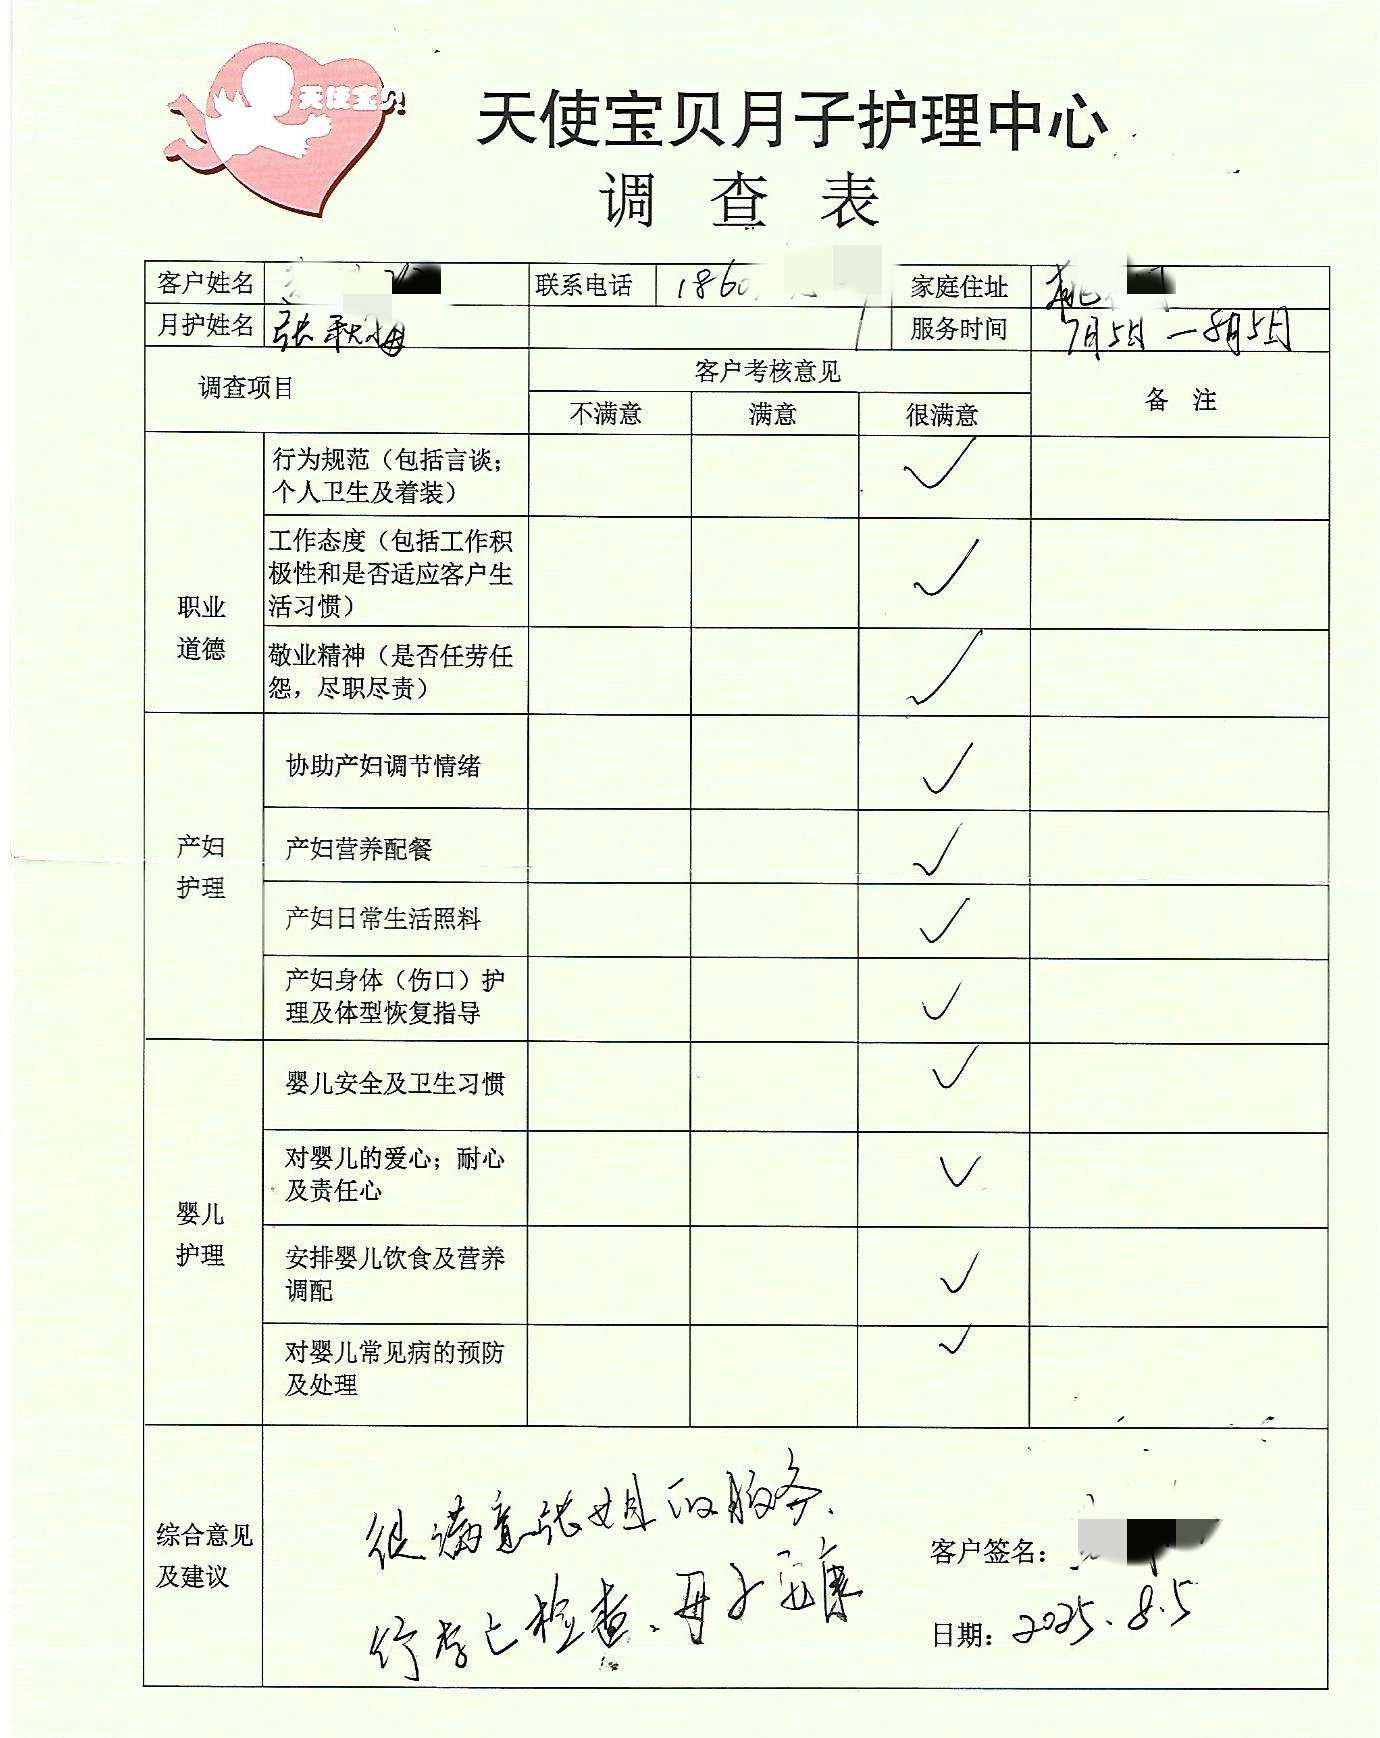 天使宝贝
天使宝贝月子护理中心
调 查 表
客户姓名 联系电话 186 家庭住址
月护姓名 张秋梅 服务时间 7月5日—8月5日
调查项目 客户考核意见 备 注
不满意 满意 很满意
职业
道德
行为规范（包括言谈；
个人卫生及着装）
工作态度（包括工作积
极性和是否适应客户生
活习惯）
敬业精神（是否任劳任
怨，尽职尽责）
产妇
护理
协助产妇调节情绪
产妇营养配餐
产妇日常生活照料
产妇身体（伤口）护
理及体型恢复指导
婴儿
护理
婴儿安全及卫生习惯
对婴儿的爱心；耐心
及责任心
安排婴儿饮食及营养
调配
对婴儿常见病的预防
及处理
综合意见
及建议
很满意张姐的服务、
行李已检查、母子安康
客户签名：
日期：2025.8.5